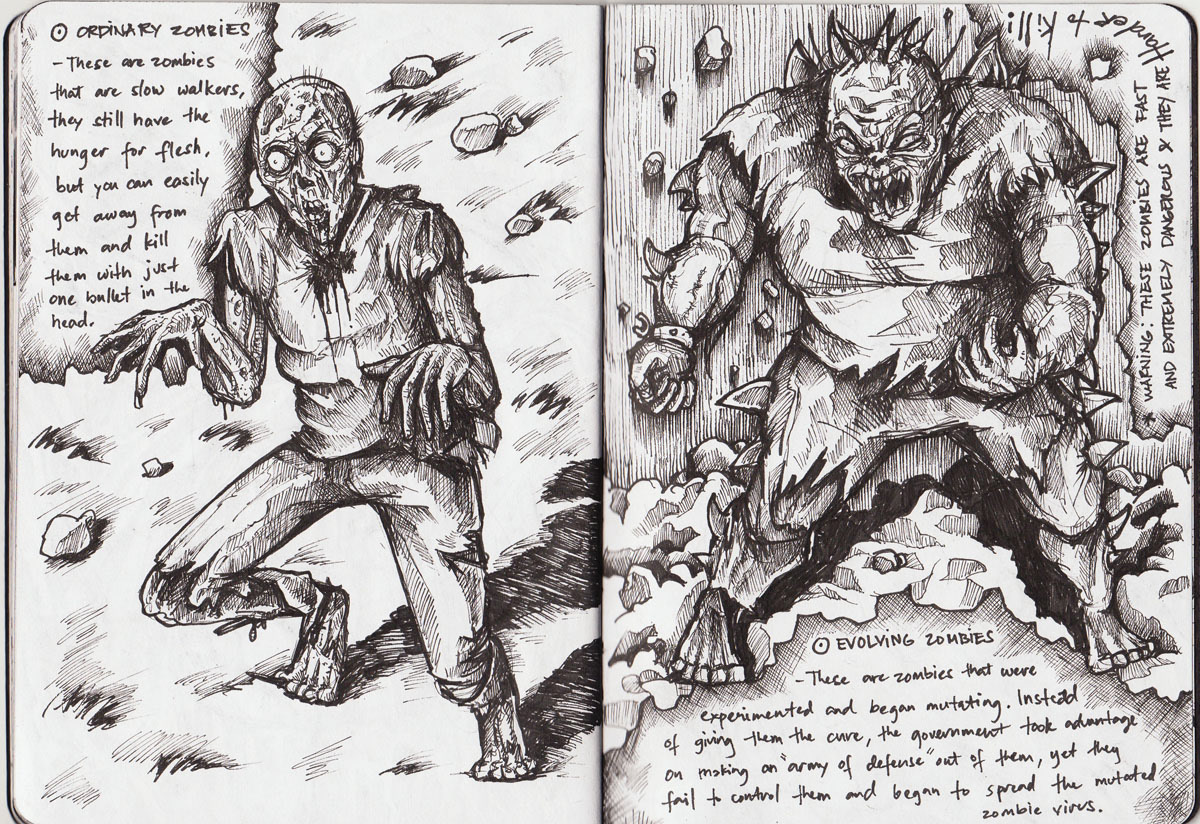 ⊙ ORDINARY ZOMBIES
- These are zombies
that are slow walkers,
they still have the
hunger for flesh,
but you can easily
get away from
them and kill
them with just
one bullet in the
head.
Harder to Kill!
* WARNING: THESE ZOMBIES ARE FAST
AND EXTREMELY DANGEROUS & THEY ARE
⊙ EVOLVING ZOMBIES
- These are zombies that were
experimented and began mutating. Instead
of giving them the cure, the government took advantage
on making an "army of defense" out of them, yet they
fail to control them and began to spread the mutated
zombie virus.